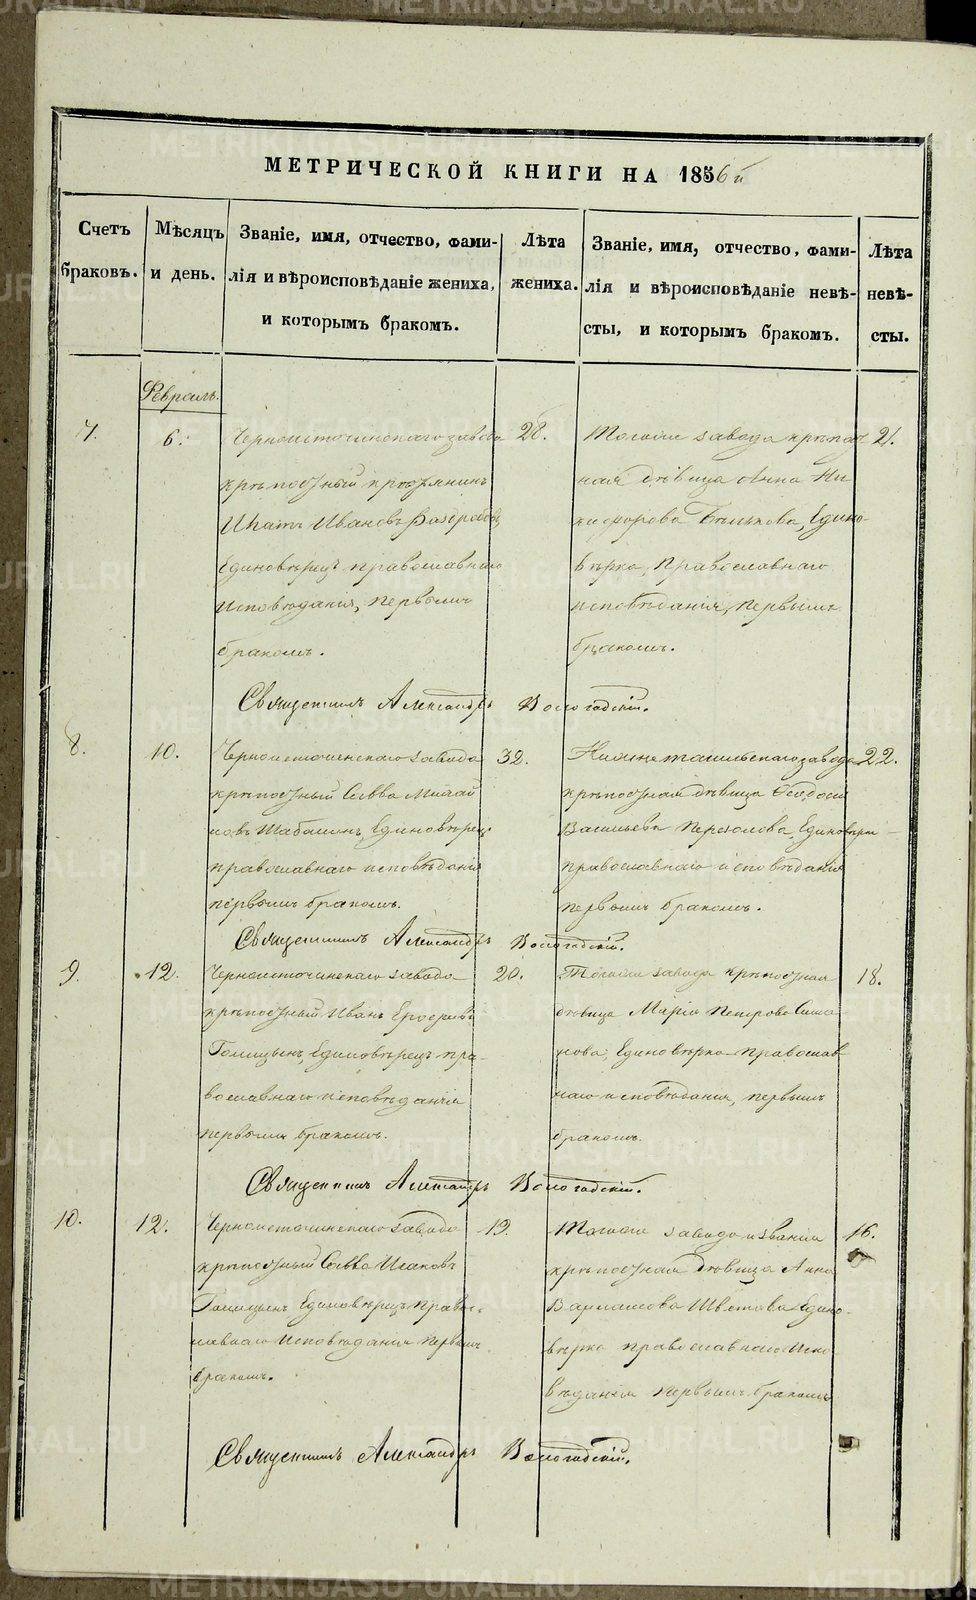 МЕТРИЧЕСКОЙ КНИГИ НА 1856й
Счетъ браковъ.
Мѣсяцъ и день.
Званіе, имя, отчество, фами-
лія и вѣроисповѣданіе жениха,
и которымъ бракомъ.
Лѣта жениха.
Званіе, имя, отчество, фами-
лія и вѣроисповѣданіе невѣ-
сты, и которымъ бракомъ.
Лѣта невѣ-
сты.
Февраль.
7.
6.
Черноисточинскаго завода
крѣпостный
Ивановъ
Единовѣрецъ православнаго
исповѣданія, первымъ
бракомъ.
28.
Тогоже завода крѣпост
ная дѣвица Анна Ни
кифорова Бѣлькова, Едино-
вѣрка, Православнаго
исповѣданія, первымъ
бракомъ.
21.
Священникъ Александръ Вологодскій.
8.
10.
Черноисточинскаго завода
крѣпостный Савва Михай
ловъ Шабалинъ, Единовѣрец.
православнаго исповѣданія
первымъ бракомъ.
32.
Нижнетагильскаго завода
крѣпостная дѣвица Ѳеодосія
Васильева Единовѣрка
православнаго исповѣданія
первымъ бракомъ.
22.
Священникъ Александръ Вологодскій.
9.
12.
Черноисточинскаго завода
крѣпостный Иванъ Ерофѣевъ
Голицынъ, Единовѣрецъ пра-
вославнаго исповѣданія
первымъ бракомъ.
20.
Тогоже завода крѣпостная
дѣвица Марія Петрова
Единовѣрка православ
наго исповѣданія, первымъ
бракомъ.
18.
Священникъ Александръ Вологодскій.
10.
12.
Черноисточинскаго завода
крѣпостный Савва Исаковъ
Голицынъ Единовѣрецъ право-
славнаго исповѣданія первымъ
бракомъ.
19.
Тогоже завода и званія
крѣпостная дѣвица Анна
Варламова Швецова Едино-
вѣрка православнаго испо
вѣданія первымъ бракомъ
16.
Священникъ Александръ Вологодскій.
METRIKI.GASO-URAL.RU